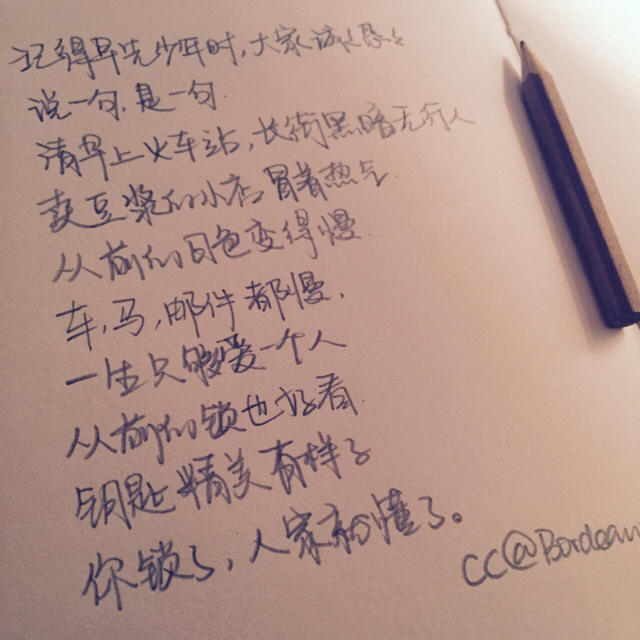 记得早先少年时,大家诚诚恳恳
说一句,是一句.
清早上火车站,长街黑暗无行人
卖豆浆的小店冒着热气.
从前的日色变得慢.
车,马,邮件都慢,
一生只够爱一个人
从前的锁也好看.
钥匙精美有样子
你锁了,人家就懂了。
CC@Bordeaux